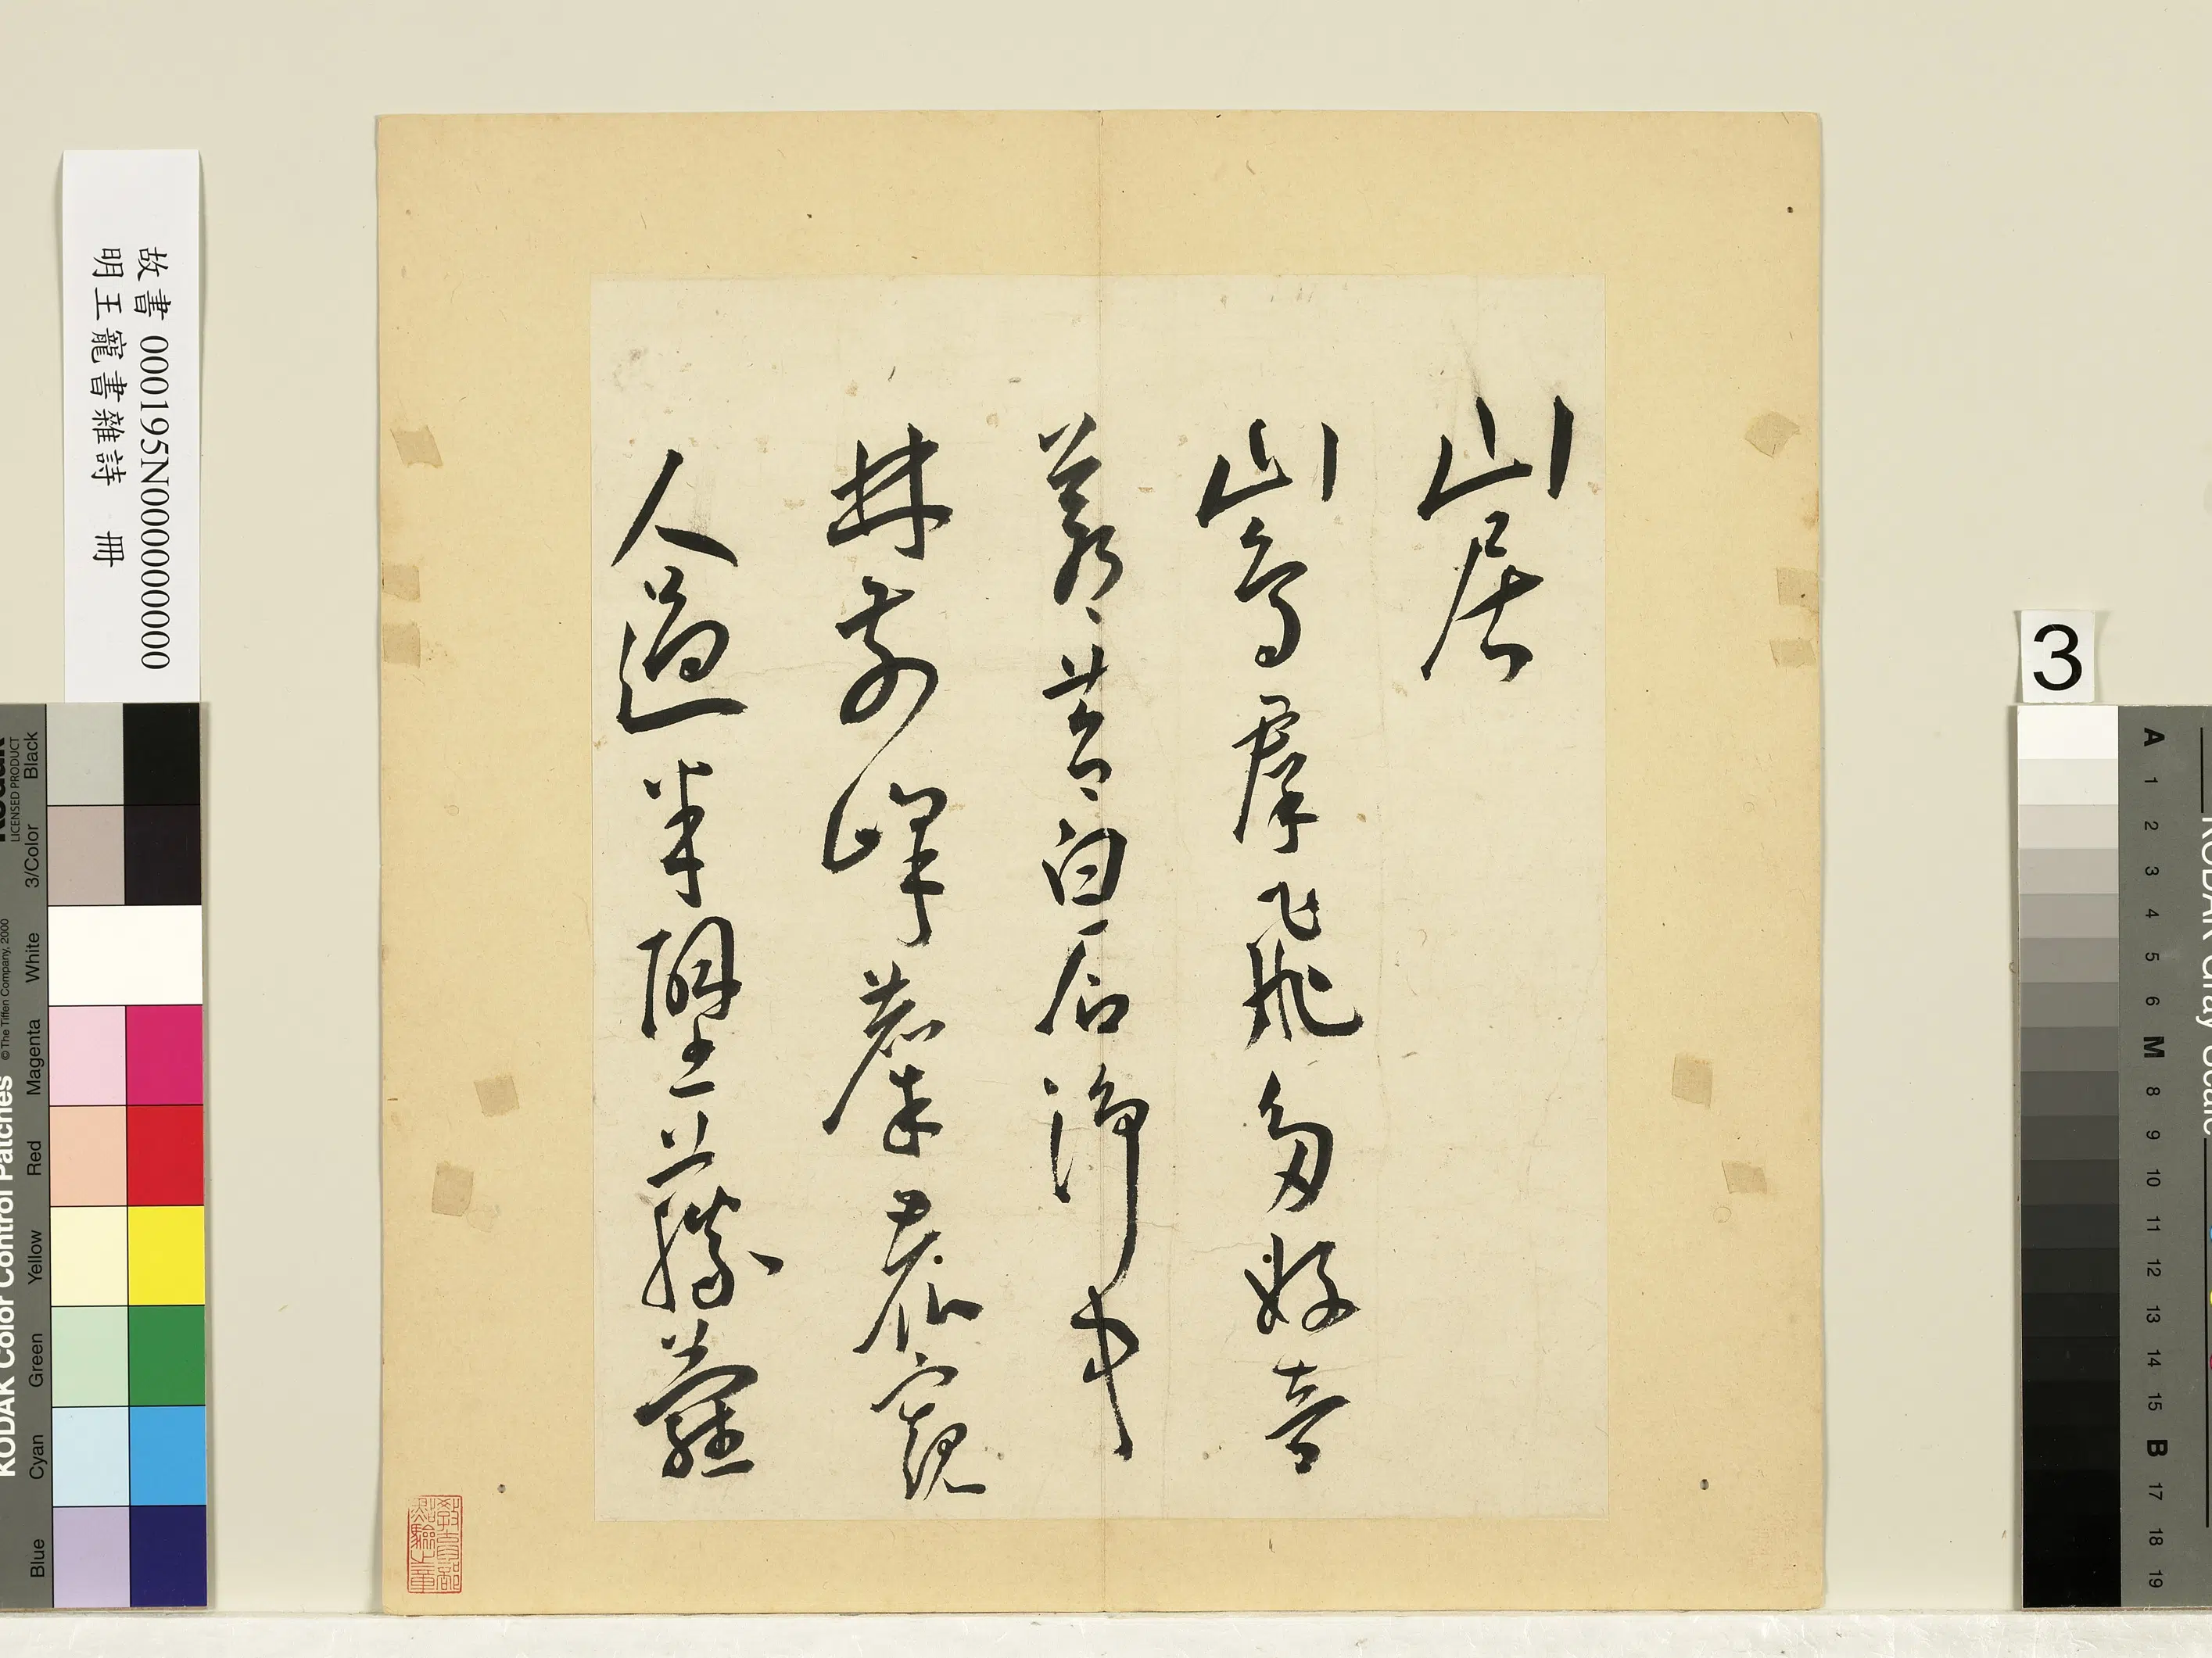 山居
山鳥群飛多好音
蒼苔白石淨中
林前峰麋鹿窺
人過半壁藤蘿
教育部
點驗之章
故書 000195N000000000
明王寵書雜詩 冊
3
KODAK Color Control Patches
LICENSED PRODUCT
© The Tiffen Company, 2000
Blue Cyan Green Yellow Red Magenta White 3/Color Black
KODAK Gray Scale
A 1 2 3 4 5 6 M 8 9 10 11 12 13 14 15 B 17 18 19